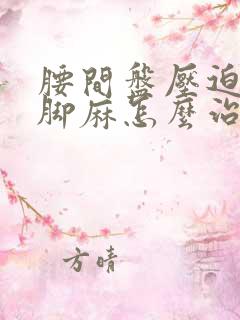 腰間盤壓迫
腳麻怎麼治
方晴